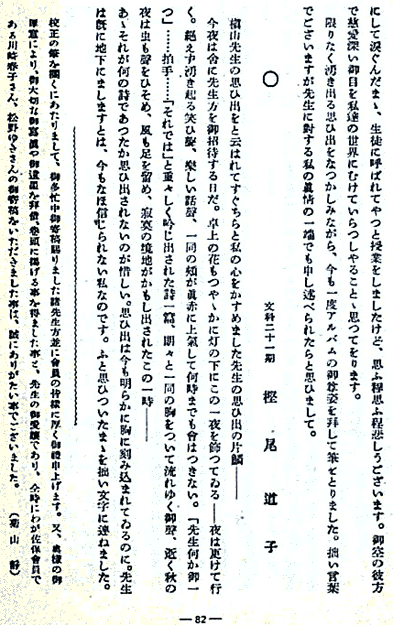 にして涙ぐんだまゝ、生徒に呼ばれてやつと授業をしましたけど、思ふ程思ふ程悲しうございます。御空の彼方
で慈愛深い御目を私達の世界にむけていらつしやること〻思つてをります。
限りなく湧き出る思ひ出をなつかしみながら、今も一度アルバムの御尊姿を拝して筆をとりました。拙い言葉
でございますが先生に対する私の眞情の一端でも申し述べられたらと思ひまして。
〇
文科二十一期 樫尾道子
横山先生の思ひ出をと云はれてすぐちらと私の心をかすめました先生の思ひ出の片鱗――
今夜は舎に先生方を御招待する日だ。卓上の花もつや〱かに灯の下にこの一夜を飾つてゐる――夜は更けて行
く。絶えず湧き起る笑ひ聲、樂しい話聲、一同の頬が眞赤に上氣して何時までも會はつきない。「先生何か御一
つ」……拍手……「それでは」と重々しく吟じ出された詩一篇、朗々と一同の胸をついて流れゆく御聲、逝く秋の
夜は虫も聲をひそめ、風も足を留め、寂寞の境地がかもし出されたこの一時――
あゝそれが何の詩であつたか思ひ出されないのが惜しい。思ひ出は今も明らかに胸に刻み込まれてゐるのに。先生
は既に地下にましますとは、今もなほ信じられない私なのです。ふと思ひついたまゝを拙い文字に連ねました。
校正の筆を擱くにあたりまして、御多忙中御寄稿賜りました諸先生方並に會員の皆様に厚く御禮申上げます。又、奥様の御
厚意により、御大切な御寫眞や御遺墨を拜借、巻頭に掲げる事を得ました事と、先生の御愛嬢であり、今時にわが佐保會員で
ある川崎春子さん、松野ゆきさんの御寄稿をいただきました事は、誠にありがたい事でございました。 （菊山 靜）
— 82 —